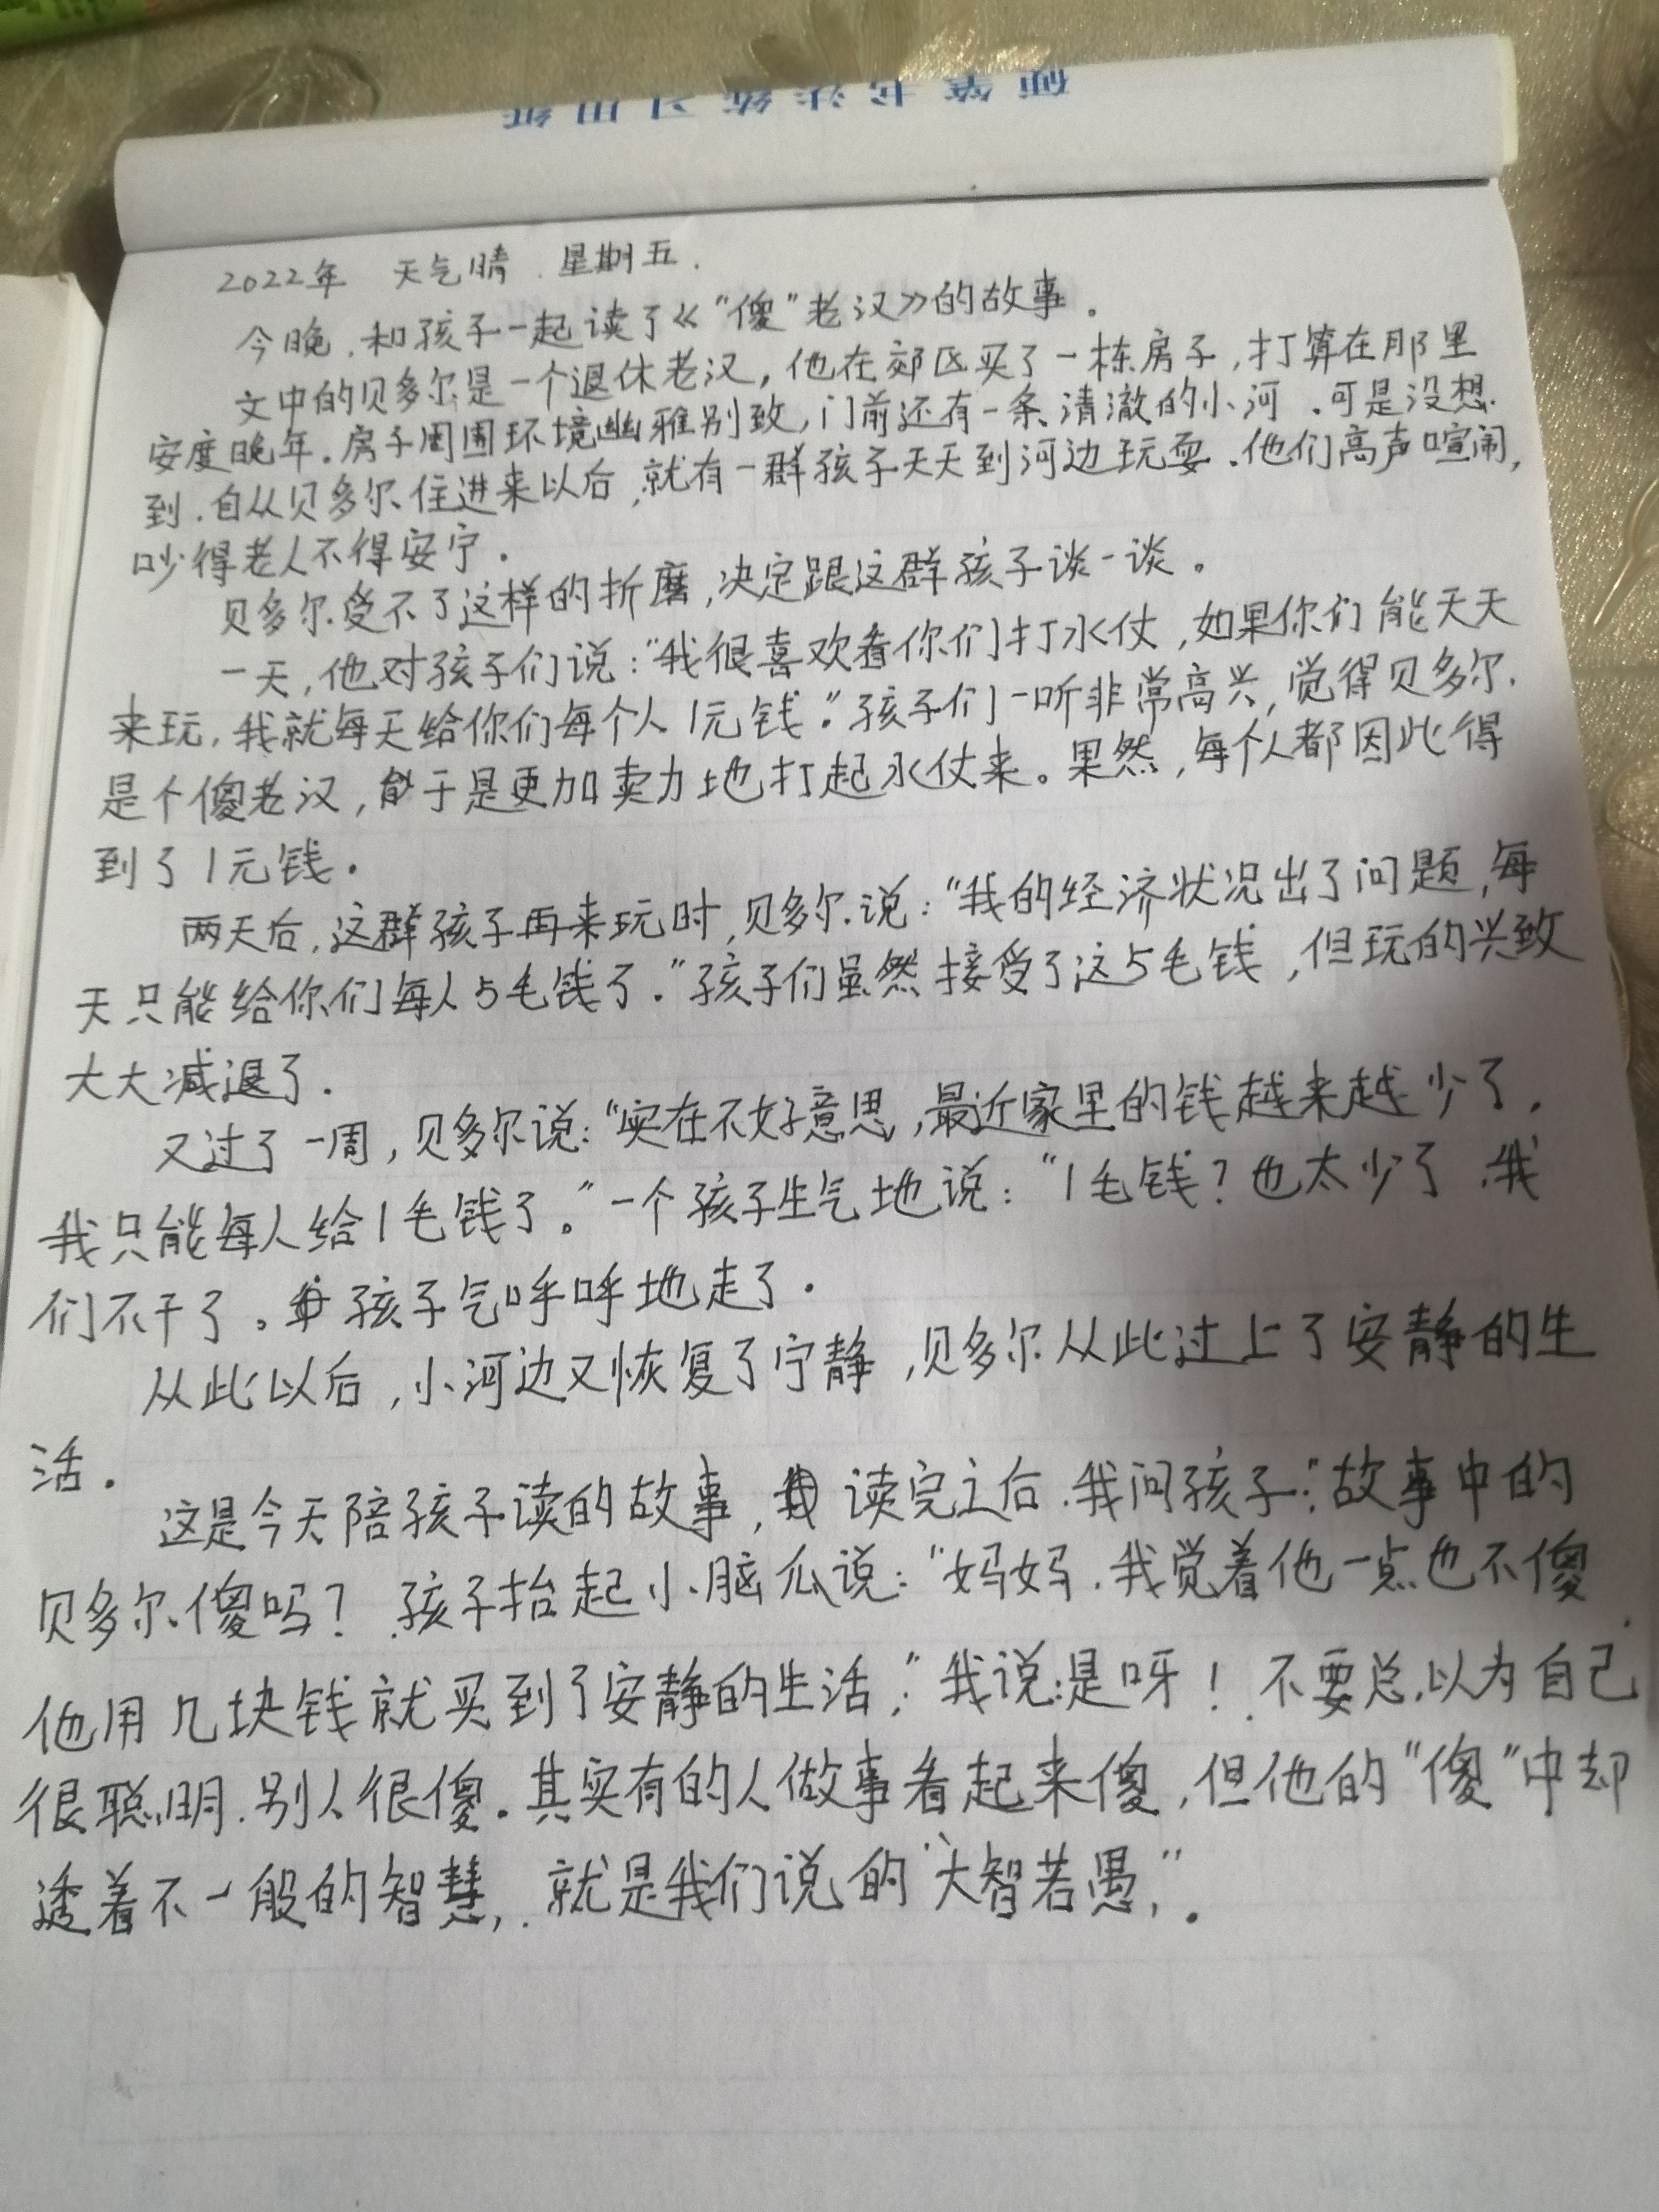 硬笔书法练习用纸
2022年 天气晴.星期五.
今晚,和孩子一起读了《“傻”老汉》的故事.
文中的贝多尔是一个退休老汉,他在郊区买了一栋房子,打算在那里
安度晚年.房子周围环境幽雅别致,门前还有一条清澈的小河.可是没想
到.自从贝多尔住进来以后,就有一群孩子天天到河边玩耍.他们高声喧闹,
吵得老人不得安宁.
贝多尔受不了这样的折磨,决定跟这群孩子谈一谈。
一天,他对孩子们说:“我很喜欢看你们打水仗,如果你们能天天
来玩,我就每天给你们每个人1元钱.”孩子们一听非常高兴,觉得贝多尔
是个傻老汉,于是更加卖力地打起水仗来。果然,每个人都因此得
到了1元钱.
两天后,这群孩子再来玩时,贝多尔说:“我的经济状况出了问题,每
天只能给你们每人5毛钱了.”孩子们虽然接受了这5毛钱,但玩的兴致
大大减退了.
又过了一周,贝多尔说:“实在不好意思,最近家里的钱越来越少了,
我只能每人给1毛钱了。”一个孩子生气地说:“1毛钱?也太少了.我
们不干了。孩子气呼呼地走了.
从此以后,小河边又恢复了宁静,贝多尔从此过上了安静的生
活.
这是今天陪孩子读的故事,读完之后.我问孩子:“故事中的
贝多尔傻吗?孩子抬起小脑瓜说:“妈妈.我觉着他一点也不傻.
他用几块钱就买到了安静的生活,”我说:是呀!不要总以为自己
很聪明.别人很傻.其实有的人做事看起来傻,但他的“傻”中却
透着不一般的智慧,就是我们说的“大智若愚,”.